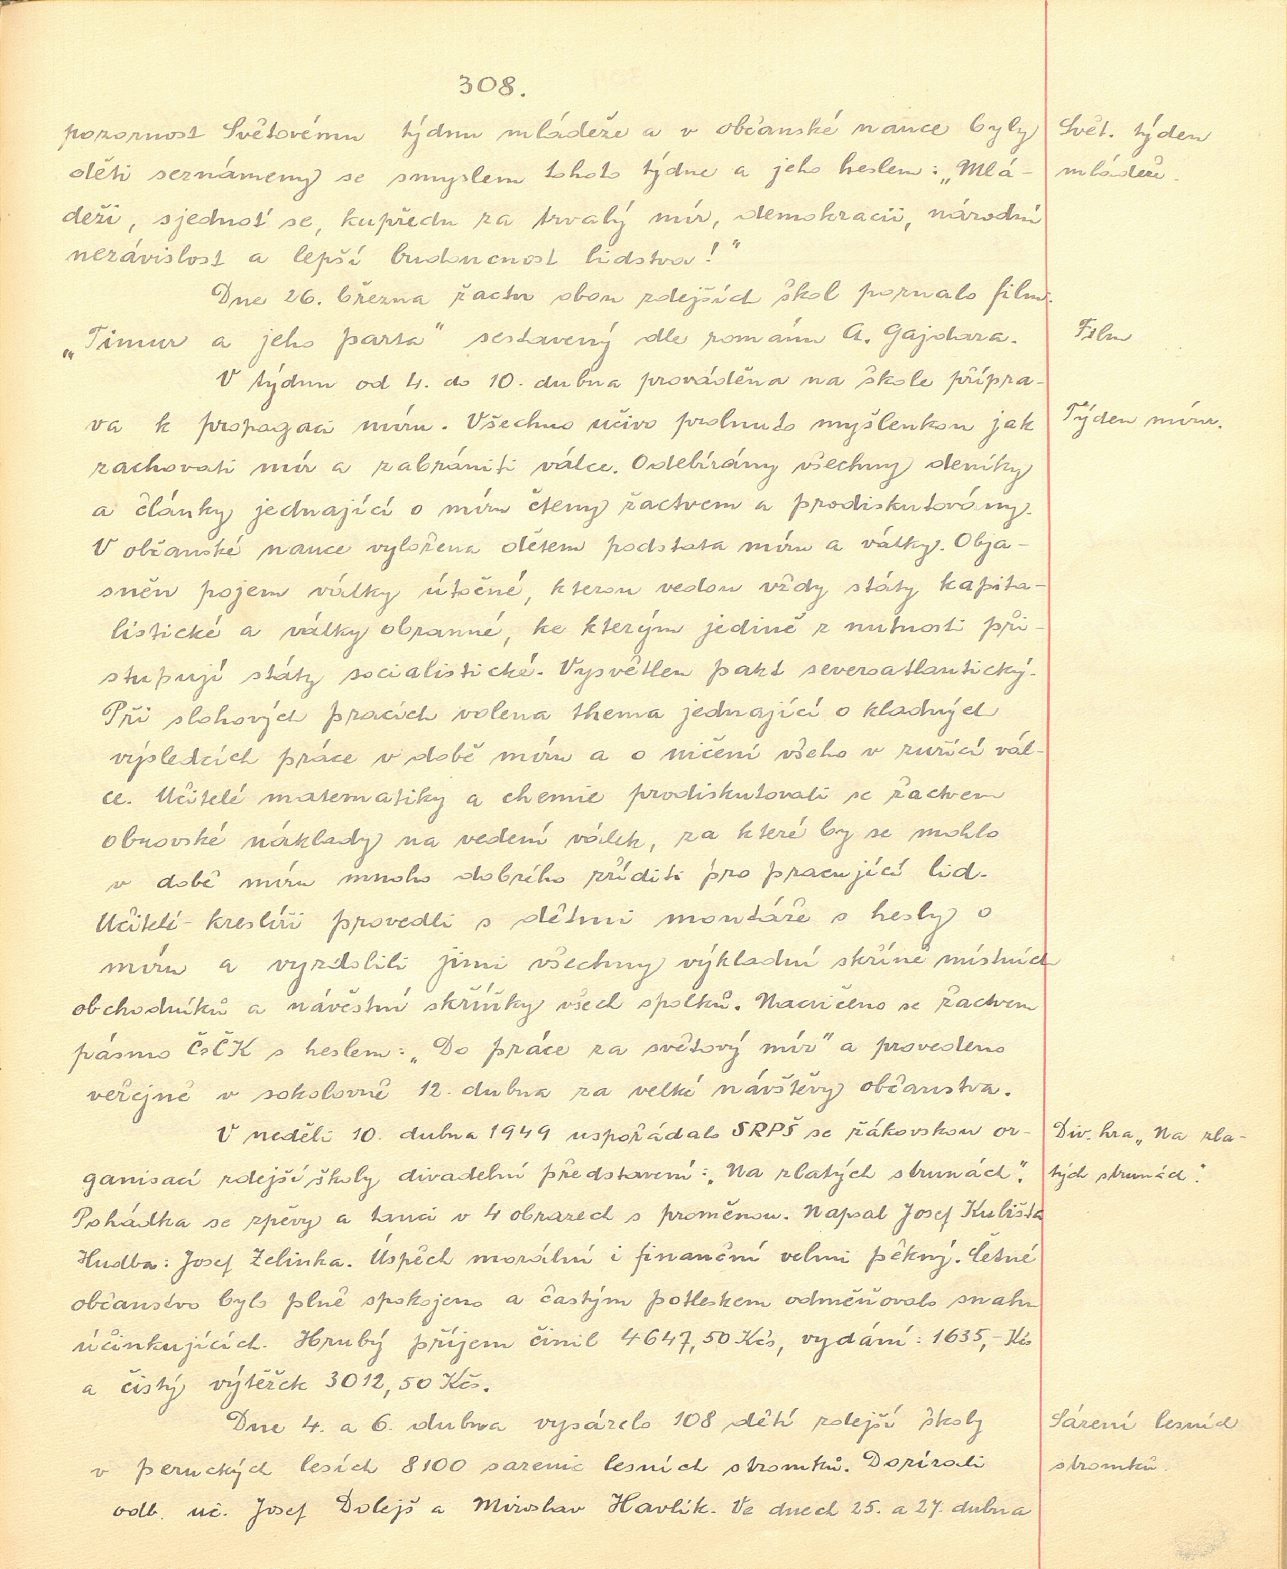 308.
pozornost Světovému týdnu mládeže a v občanské nauce byly
děti seznámeny se smyslem tohoto týdne a jeho heslem: „Mlá-
deži, sjednoť se, kupředu za trvalý mír, demokracii, národní
nezávislost a lepší budoucnost lidstva!"
Dne 26. března žactvu obou zdejších škol poznalo film.
„Timur a jeho parta" sestavený dle románu A. Gajdara.
V týdnu od 4. do 10. dubna prováděna na škole přípra-
va k propagaci míru. Všechno učivo prolnuto myšlenkou jak
zachovati mír a zabrániti válce. Odebírány všechny deníky
a články jednající o míru čteny žactvem a prodiskutovány.
V občanské nauce vyložena dětem podstata míru a války. Obja-
sněn pojem války útočné, kterou vedou vždy státy kapita-
listické a války obranné, ke kterým jedině z nutnosti při-
stupují státy socialistické. Vysvětlen pakt severoatlantický.
Při slohových pracích volena thema jednající o kladných
výsledcích práce v době míru a o ničení všeho v zuřící vál-
ce. Učitelé matematiky a chemie prodiskutovali se žactvem
obrovské náklady na vedení válek, za které by se mohlo
v době míru mnoho dobrého zříditi pro pracující lid.
Učitelé-kreslíři provedli s dětmi montáže s hesly o
míru a vyzdobili jimi všechny výkladní skříně místních
obchodníků a návěstní skříňky všech spolků. Nacvičeno se žactvem
pásmo ČsČK s heslem: „Do práce za světový mír" a provedeno
veřejně v sokolovně 12. dubna za velké návštěvy občanstva.
V neděli 10. dubna 1949 uspořádalo SRPŠ se žákovskou or-
ganisací zdejší školy divadelní představení: „Na zlatých strunách".
Pohádka se zpěvy a tanci v 4 obrazech s proměnou. Napsal Josef Kubišta
Hudba: Josef Zelinka. Úspěch morální i finanční velmi pěkný. Četné
občanstvo bylo plně spokojeno a častým potleskem odměňovalo snahu
účinkujících. Hrubý příjem činil 4647,50 Kčs, vydání: 1635,- Kčs
a čistý výtěžek 3012,50 Kčs.
Dne 4. a 6. dubna vysázelo 108 dětí zdejší školy
v peruckých lesích 8100 sazenic lesních stromků. Dozírali
odb. uč. Josef Dolejš a Miroslav Havlík. Ve dnech 25. a 27. dubna
Svět. týden
mládeže.
Film
Týden míru.
Div. hra „Na zla-
tých strunách".
Sázení lesních
stromků.